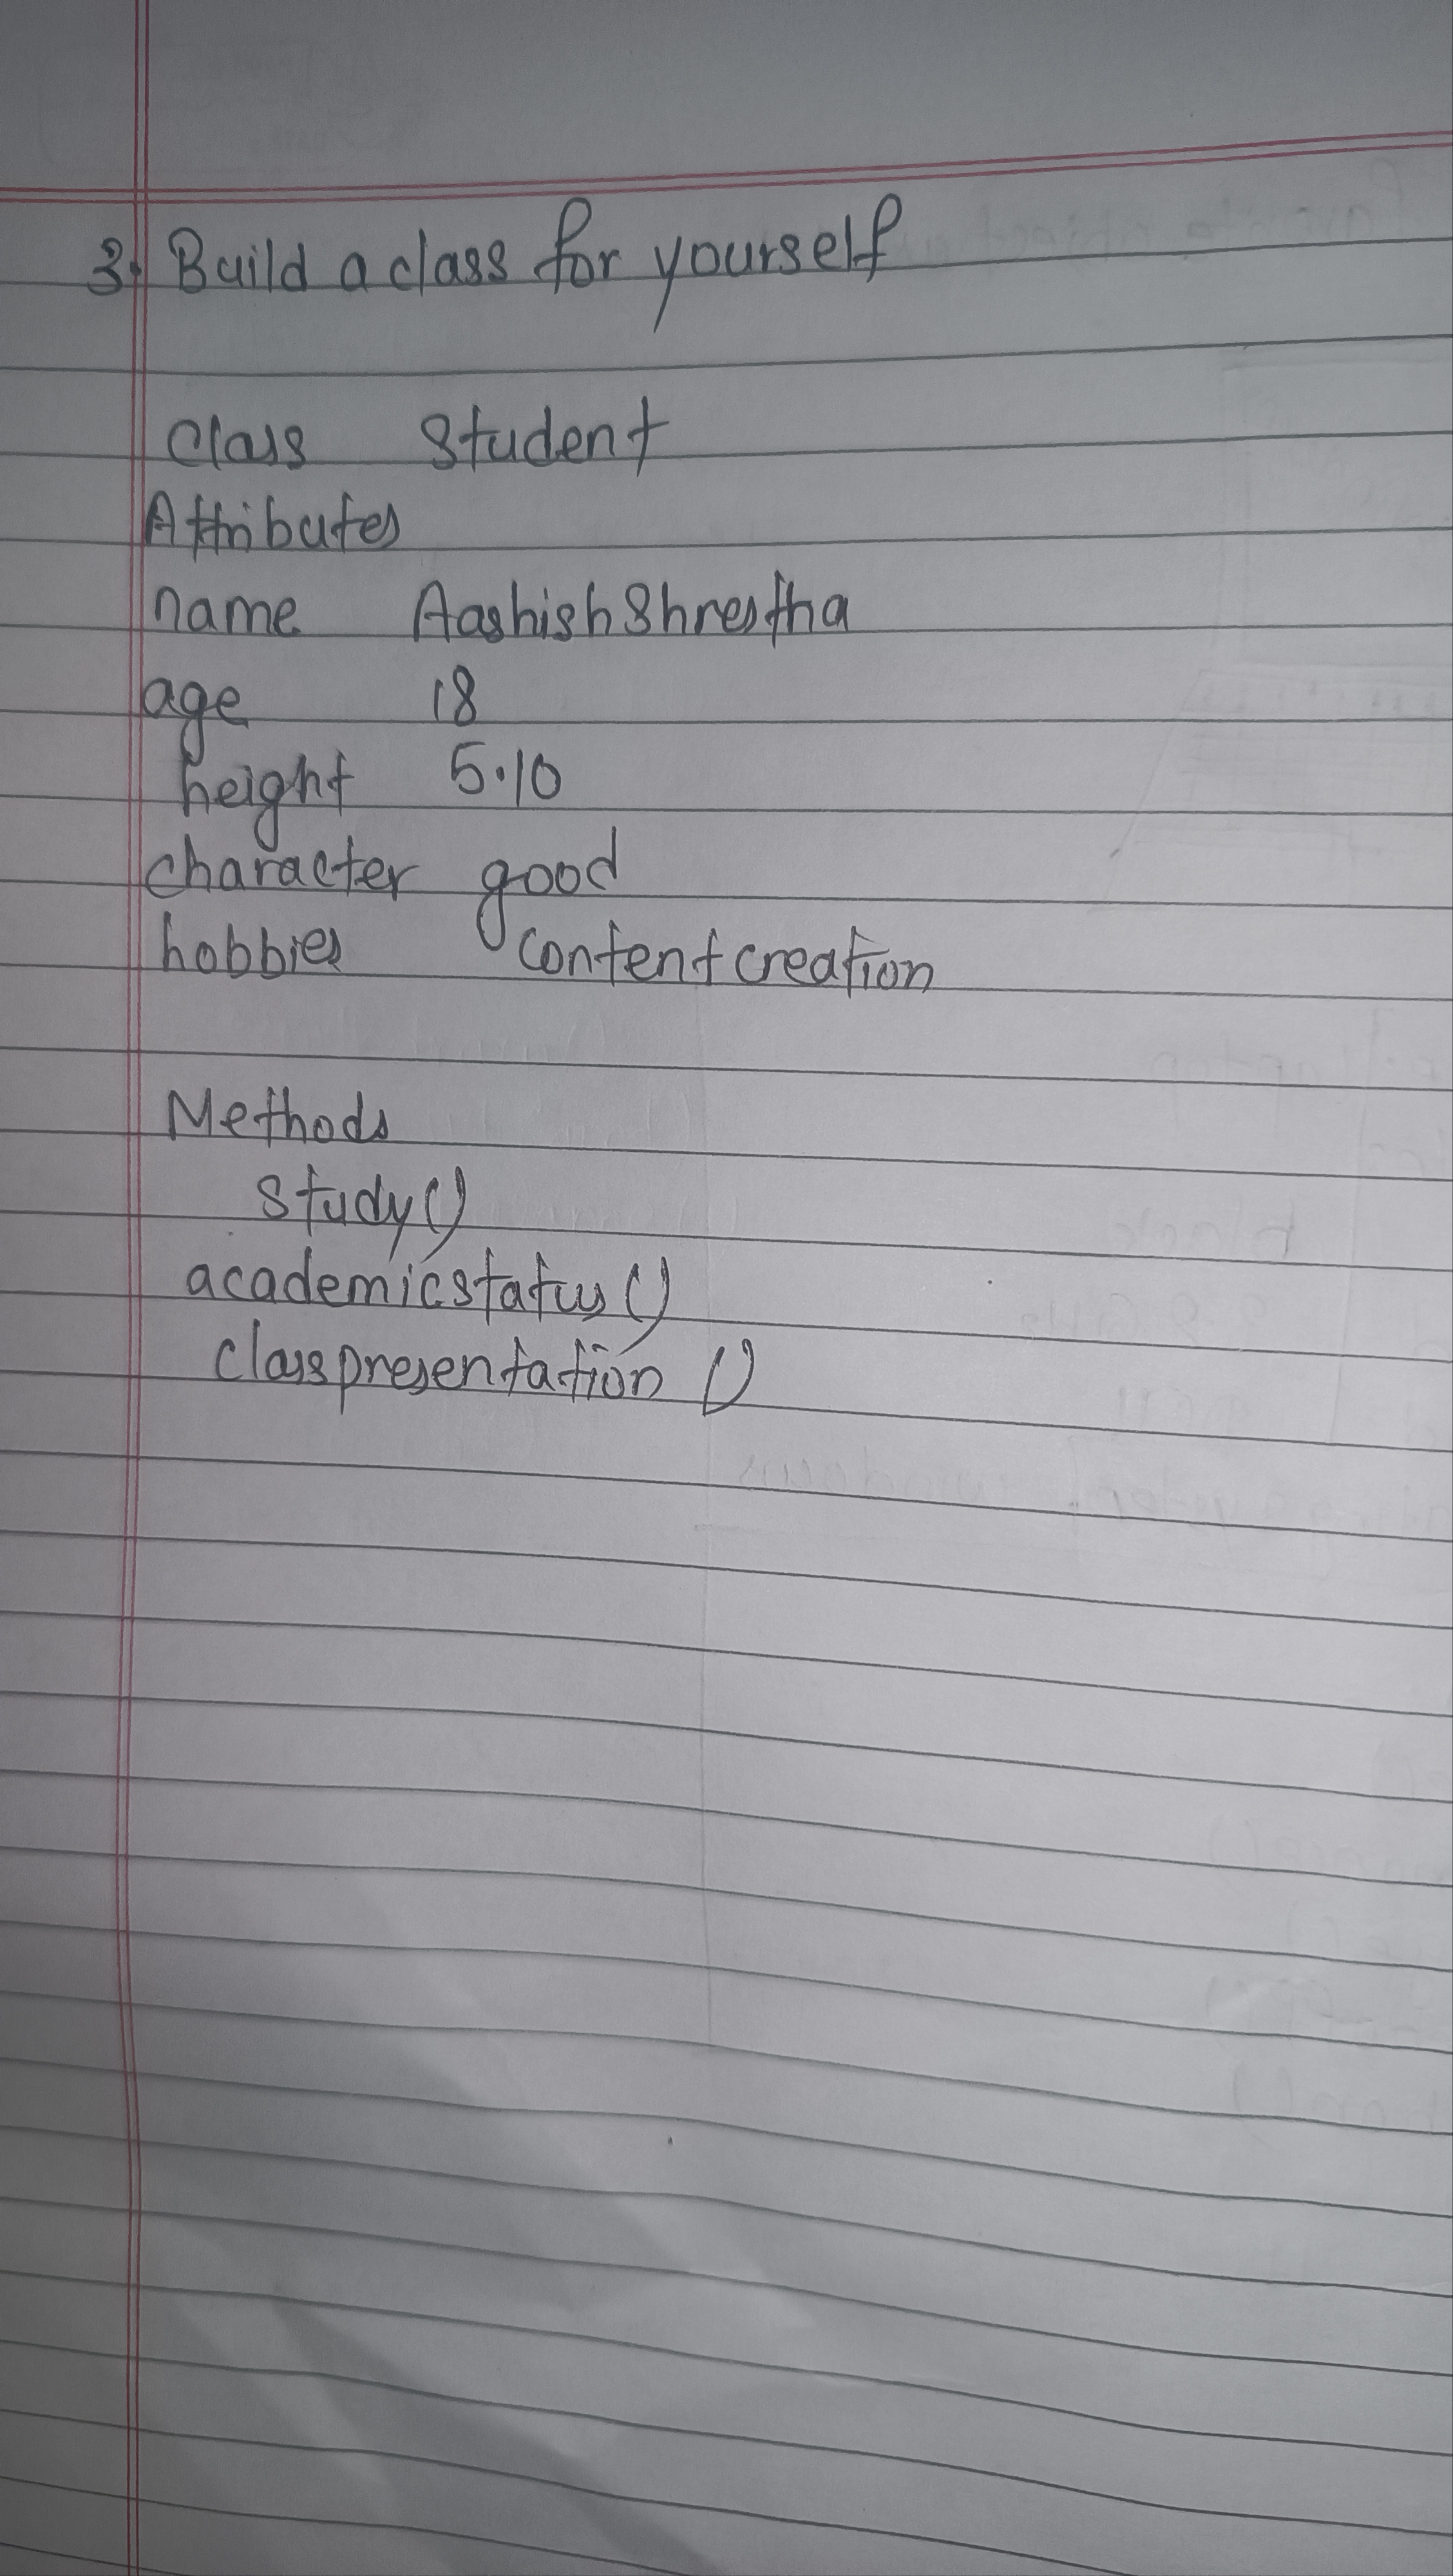 3. Build a class for yourself
Class Student
Attributes
name Aashish Shrestha
age 18
height 5.10
character good
hobbies content creation
Methods
study()
academicstatus()
classpresentation ()